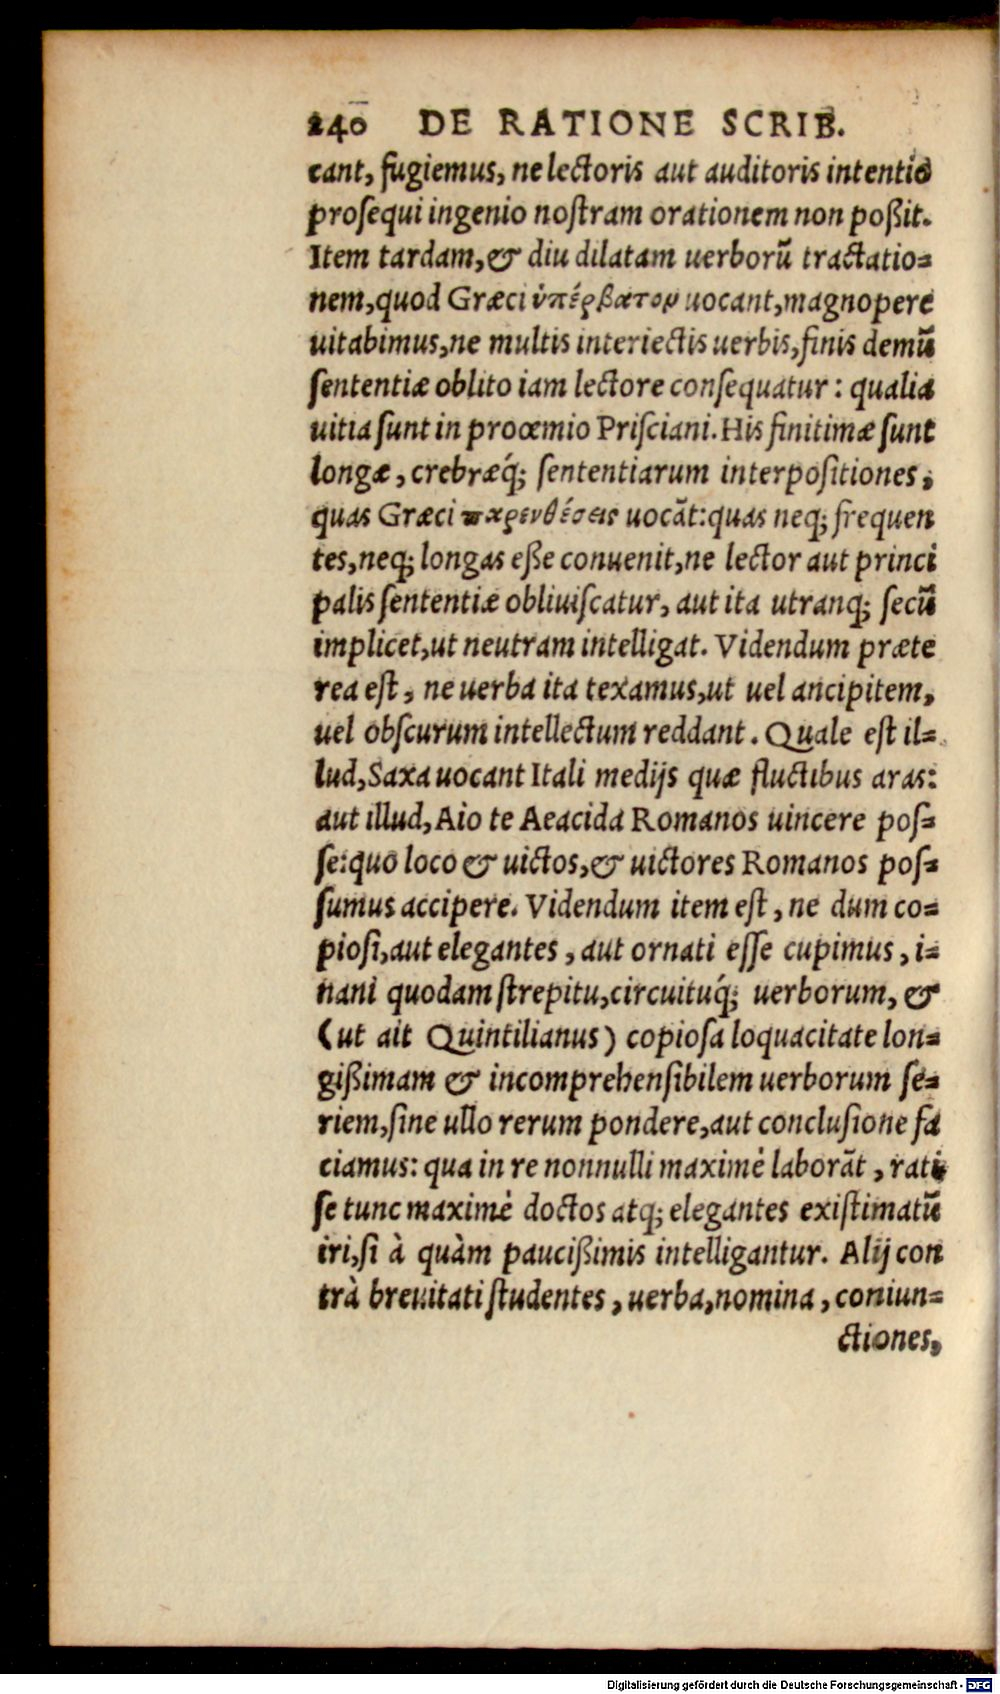 240 DE RATIONE SCRIB.
cant, fugiemus, ne lectoris aut auditoris intentio
proſequi ingenio noſtram orationem non poßit.
Item tardam, & diu dilatam uerborũ tractatio=
nem, quod Græci ὑπέρβατον uocant, magnopere
uitabimus, ne multis interiectis uerbis, finis demũ
ſententiæ oblito iam lectore conſequatur: qualia
uitia ſunt in proœmio Priſciani. His finitimæ ſunt
longæ, crebræq́; ſententiarum interpoſitiones,
quas Græci παρενθέσεις uocãt: quas neq; frequen
tes, neq; longas eße conuenit, ne lector aut princi
palis ſententiæ obliuiſcatur, aut ita utranq; ſecũ
implicet, ut neutram intelligat. Videndum præte
rea eſt, ne uerba ita texamus, ut uel ancipitem,
uel obſcurum intellectum reddant. Quale eſt il=
lud, Saxa uocant Itali medijs quæ fluctibus aras:
aut illud, Aio te Aeacida Romanos uincere poſ=
ſe: quo loco & uictos, & uictores Romanos poſ=
ſumus accipere. Videndum item eſt, ne dum co=
pioſi, aut elegantes, aut ornati eſſe cupimus, i=
nani quodam ſtrepitu, circuituq́; uerborum, &
(ut ait Quintilianus) copioſa loquacitate lon=
gißimam & incomprehenſibilem uerborum ſe=
riem, ſine ullo rerum pondere, aut concluſione fa
ciamus: qua in re nonnulli maximè laborãt, rati
ſe tunc maximè doctos atq; elegantes exiſtimatũ
iri, ſi à quàm paucißimis intelligantur. Alij con
trà breuitati ſtudentes, uerba, nomina, coniun=
ctiones,
Digitalisierung gefördert durch die Deutsche Forschungsgemeinschaft - DFG